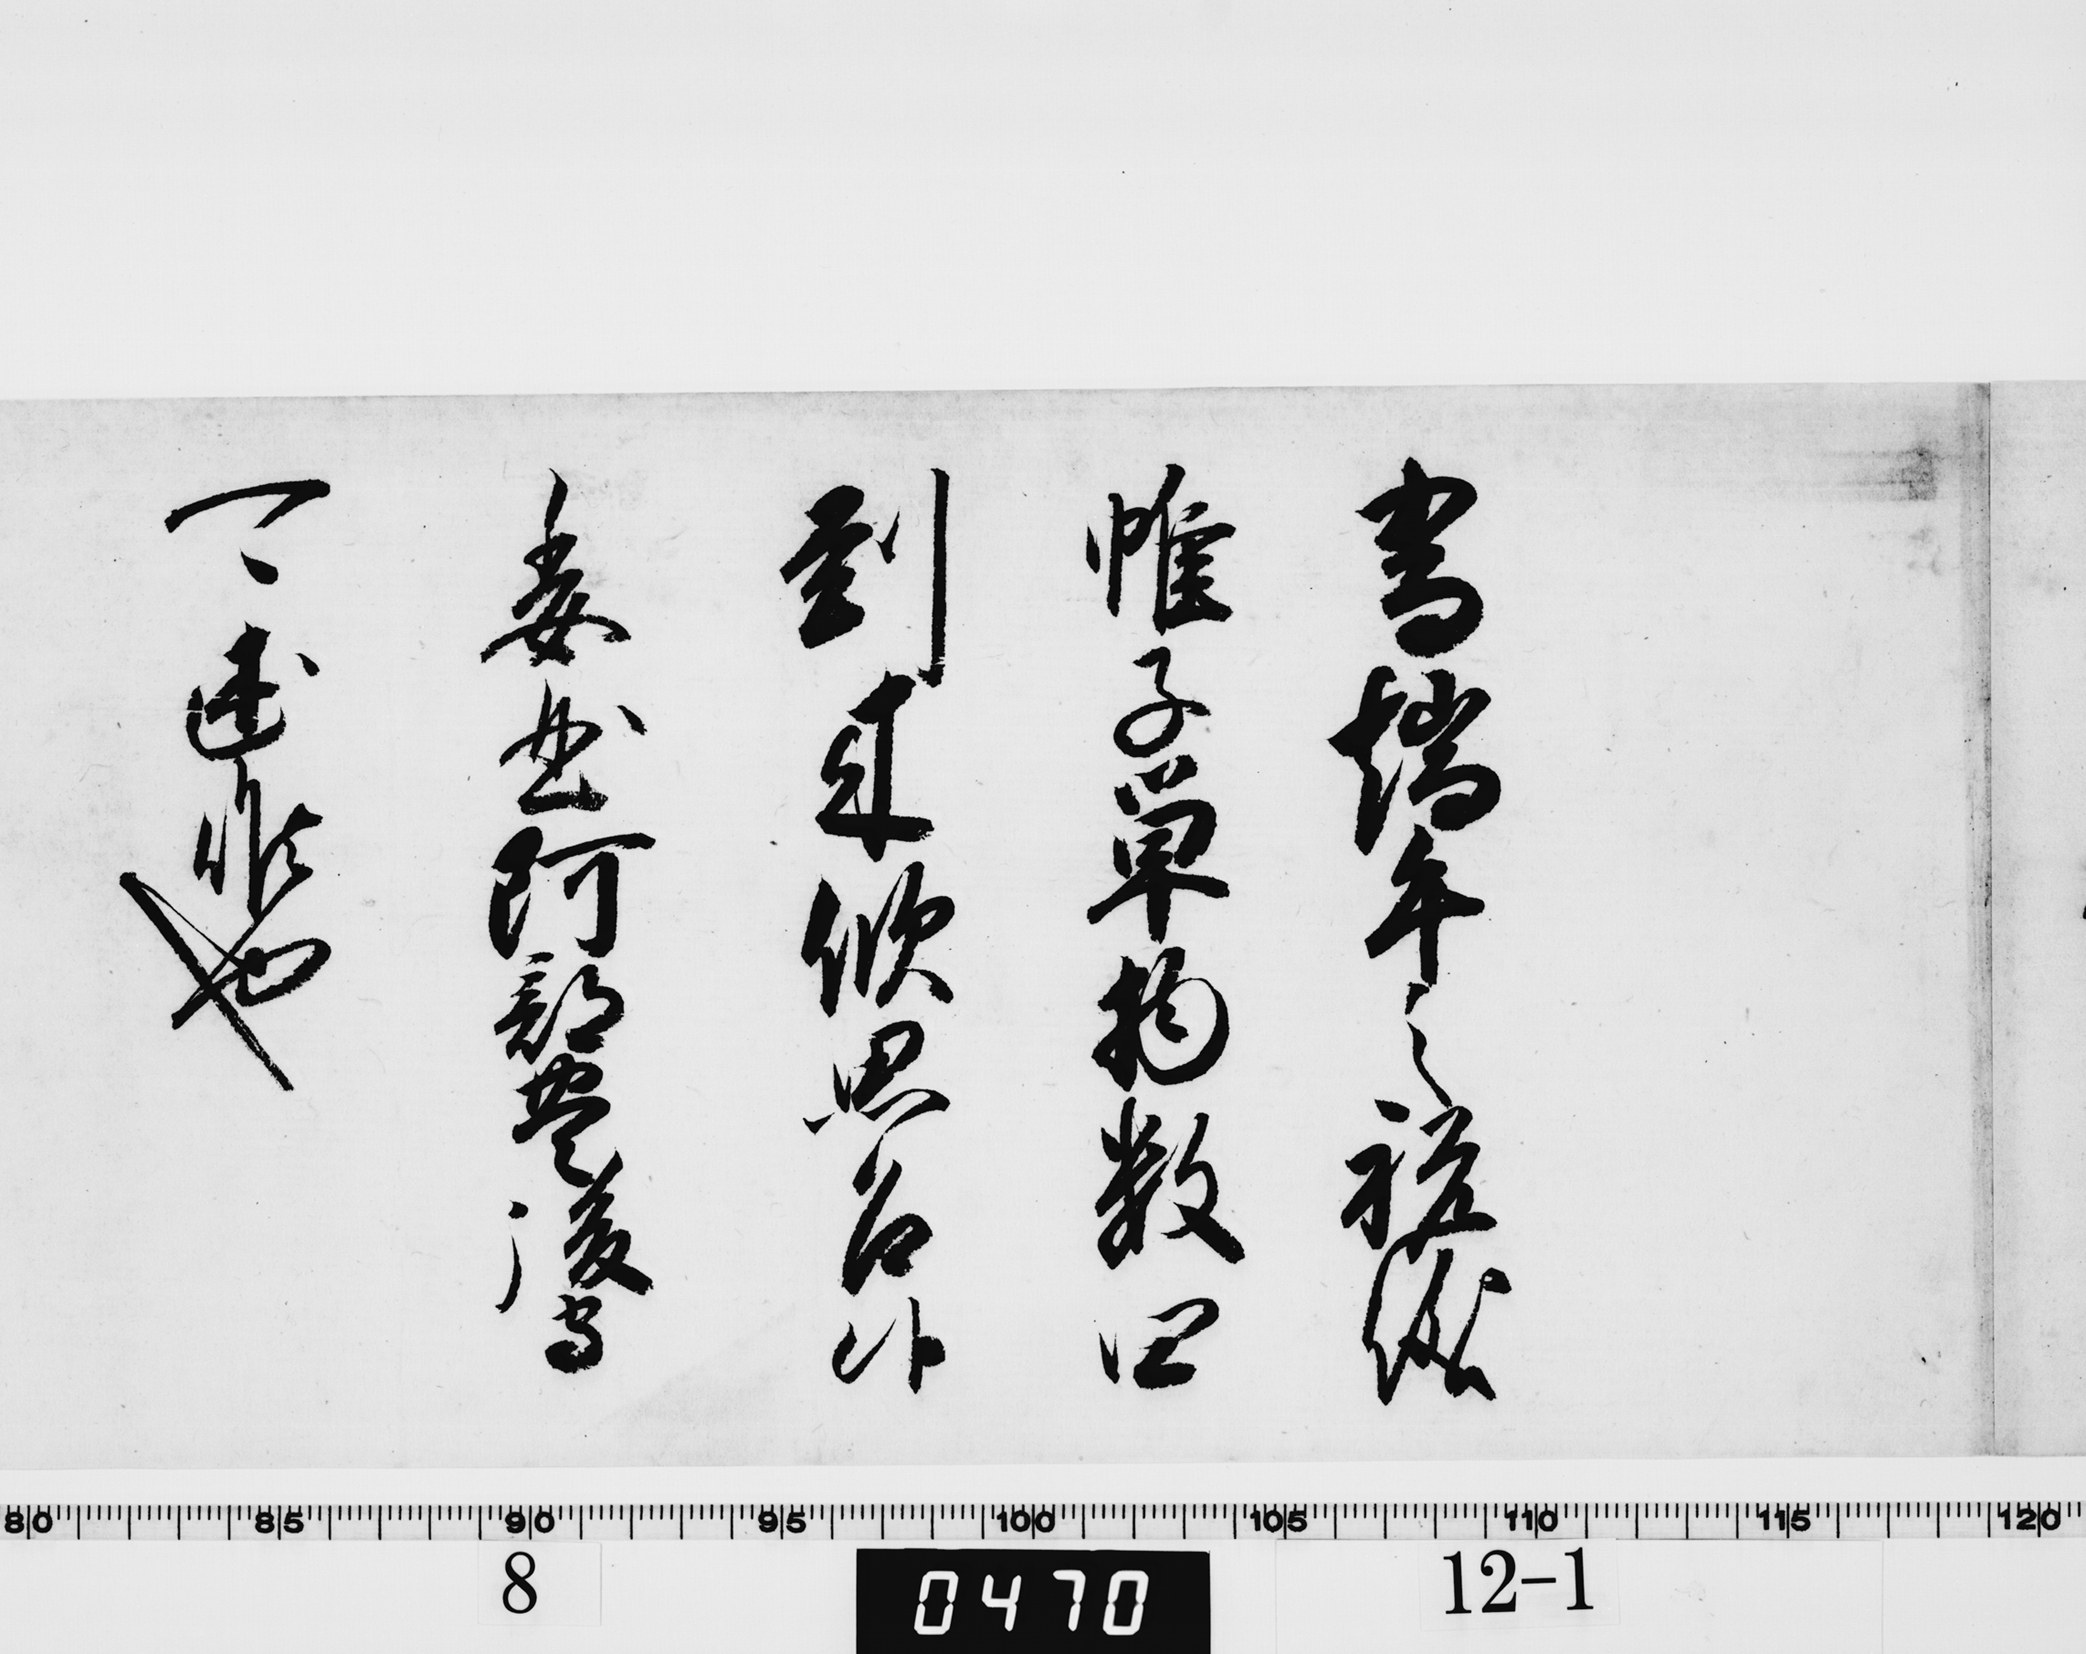 為端午之祝儀
帷子単物数四
到来欣思召候
委曲阿部豊後守
可述候也
80 85 90 95 100 105 110 115 120
8 0470 12-1